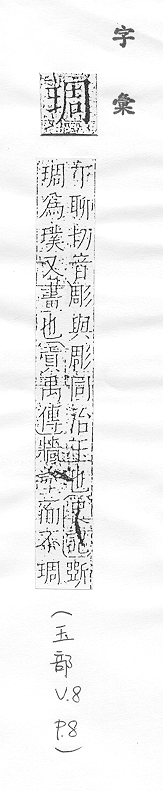 字彙
琱
丁聊切音彫與彫同治玉也又斲
琱為璞又畫也貢禹傳牆塗而不琱
(玉部
V.8
P.8)